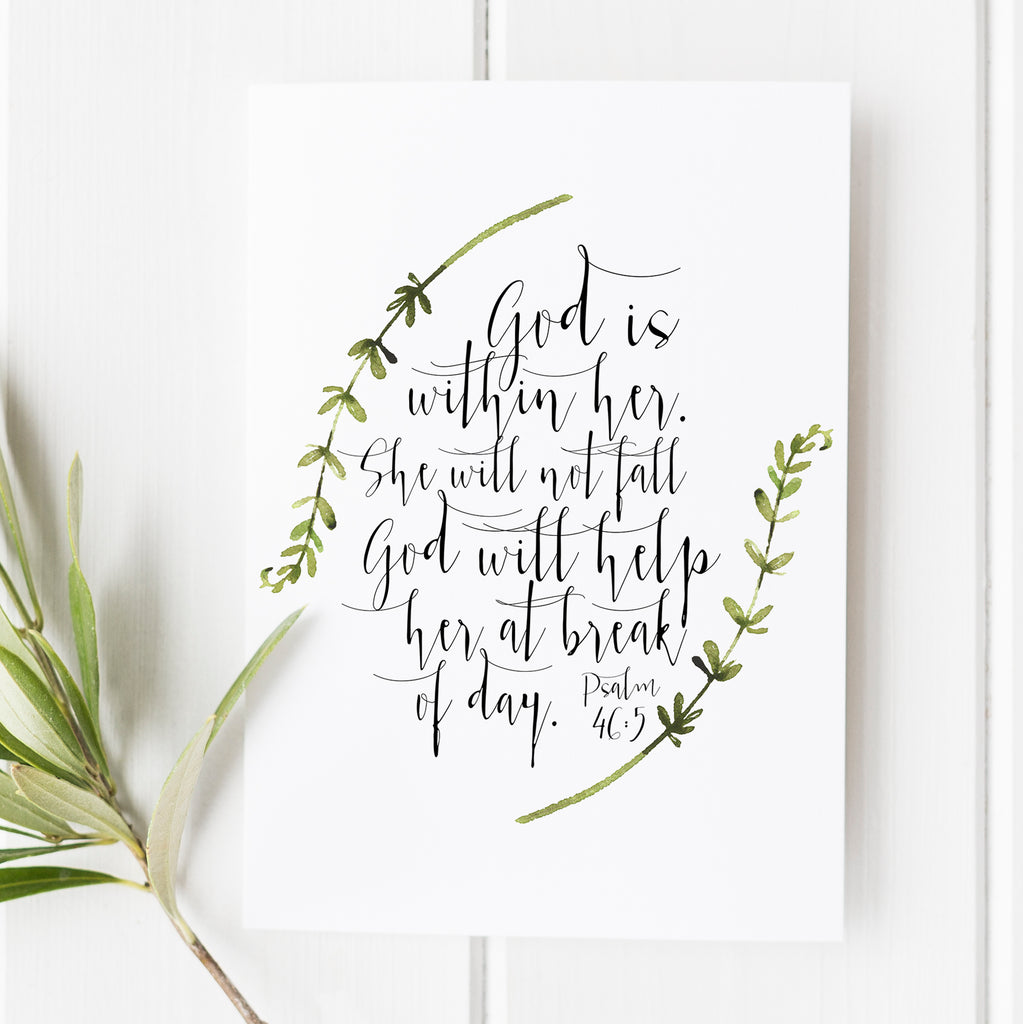 God is
within her.
She will not fall
God will help
her at break
of day. Psalm
46:5